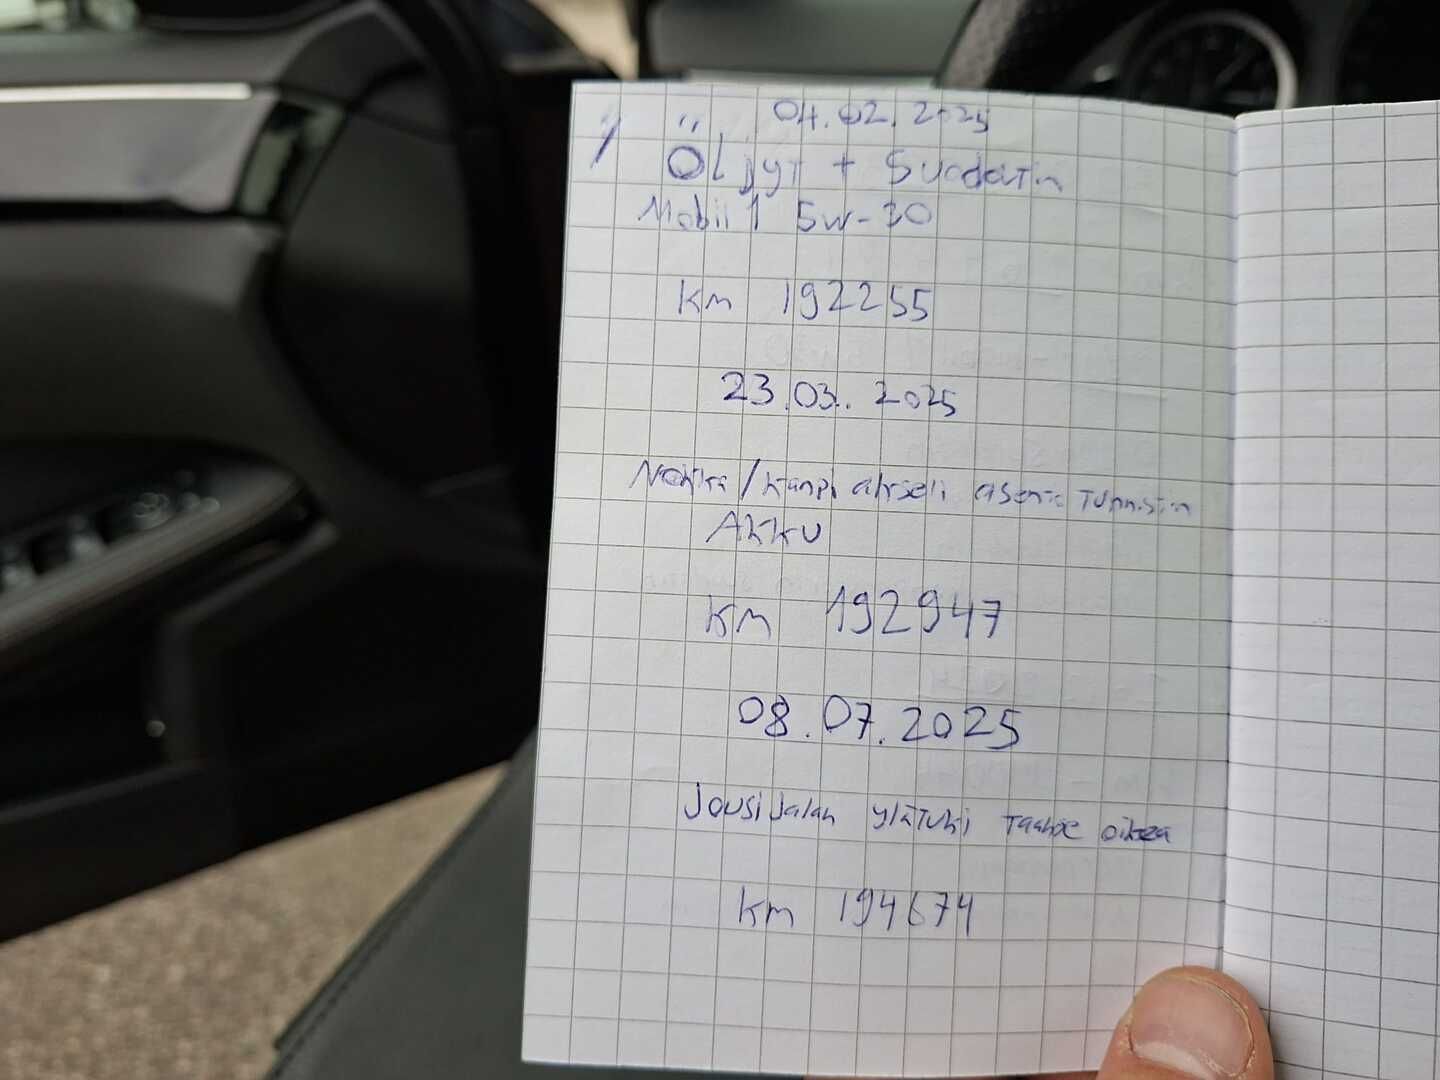 04.02.2025
Öljyt + Suodatin
Mobil 1 5w-30
Km 192255
23.03.2025
Nokka/kampi akseli asento tunnistin
AKKU
Km 192947
08.07.2025
Jousijalan ylätuki taakse oikea
Km 194674